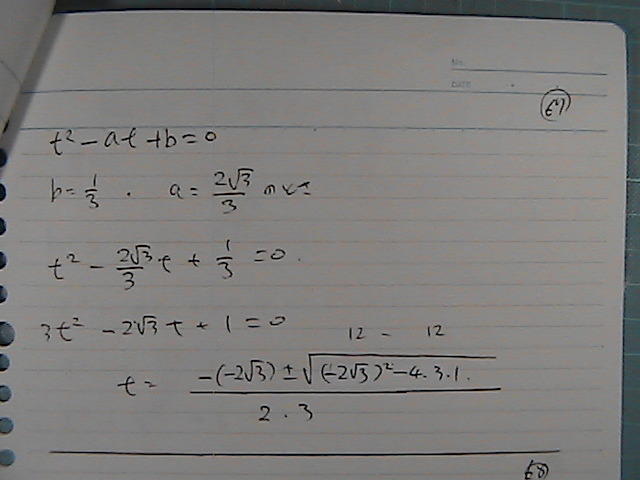 No.
DATE
67
t² - at + b = 0
b = 1/3 . a = 2√3/3 のとき
t² - 2√3/3 t + 1/3 = 0.
3t² - 2√3 t + 1 = 0
12 - 12
t = -(-2√3) ± √((-2√3)² - 4.3.1.) / 2.3
68